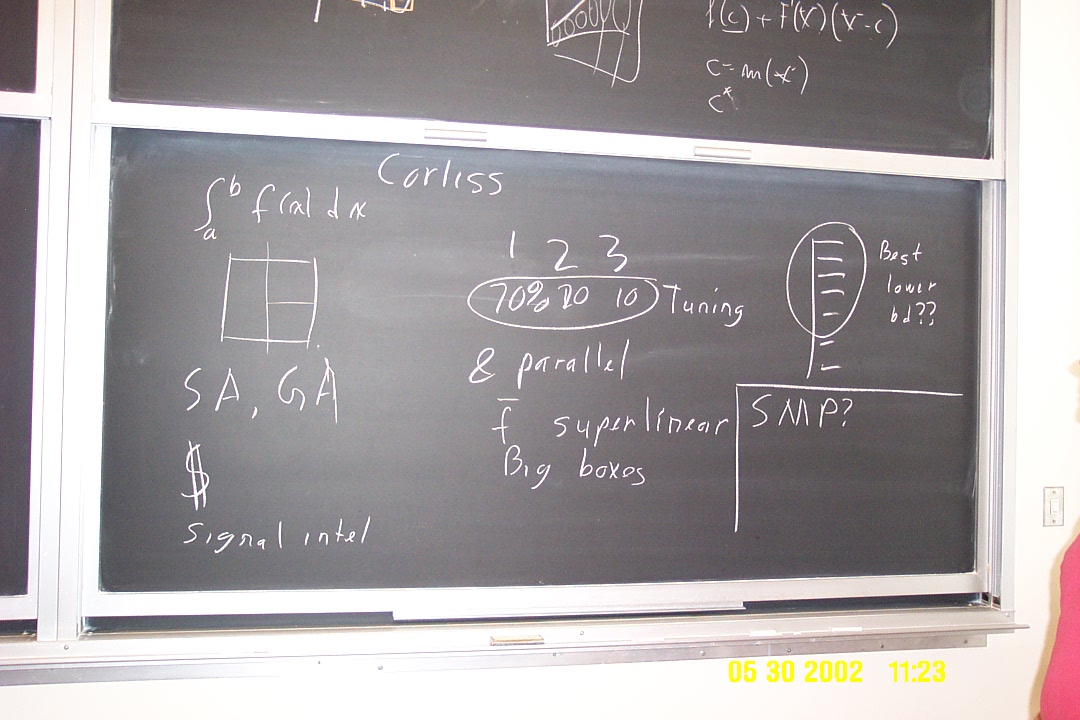 f(c) + F'(X)(X-c)
c = m(x)
c*
Corliss
∫ₐᵇ f(x) dx
1 2 3
70% 20 10 Tuning
& parallel
f̅ superlinear
Big boxes
SA, GA
$
signal intel
Best
lower
bd??
SMP?
05 30 2002 11:23